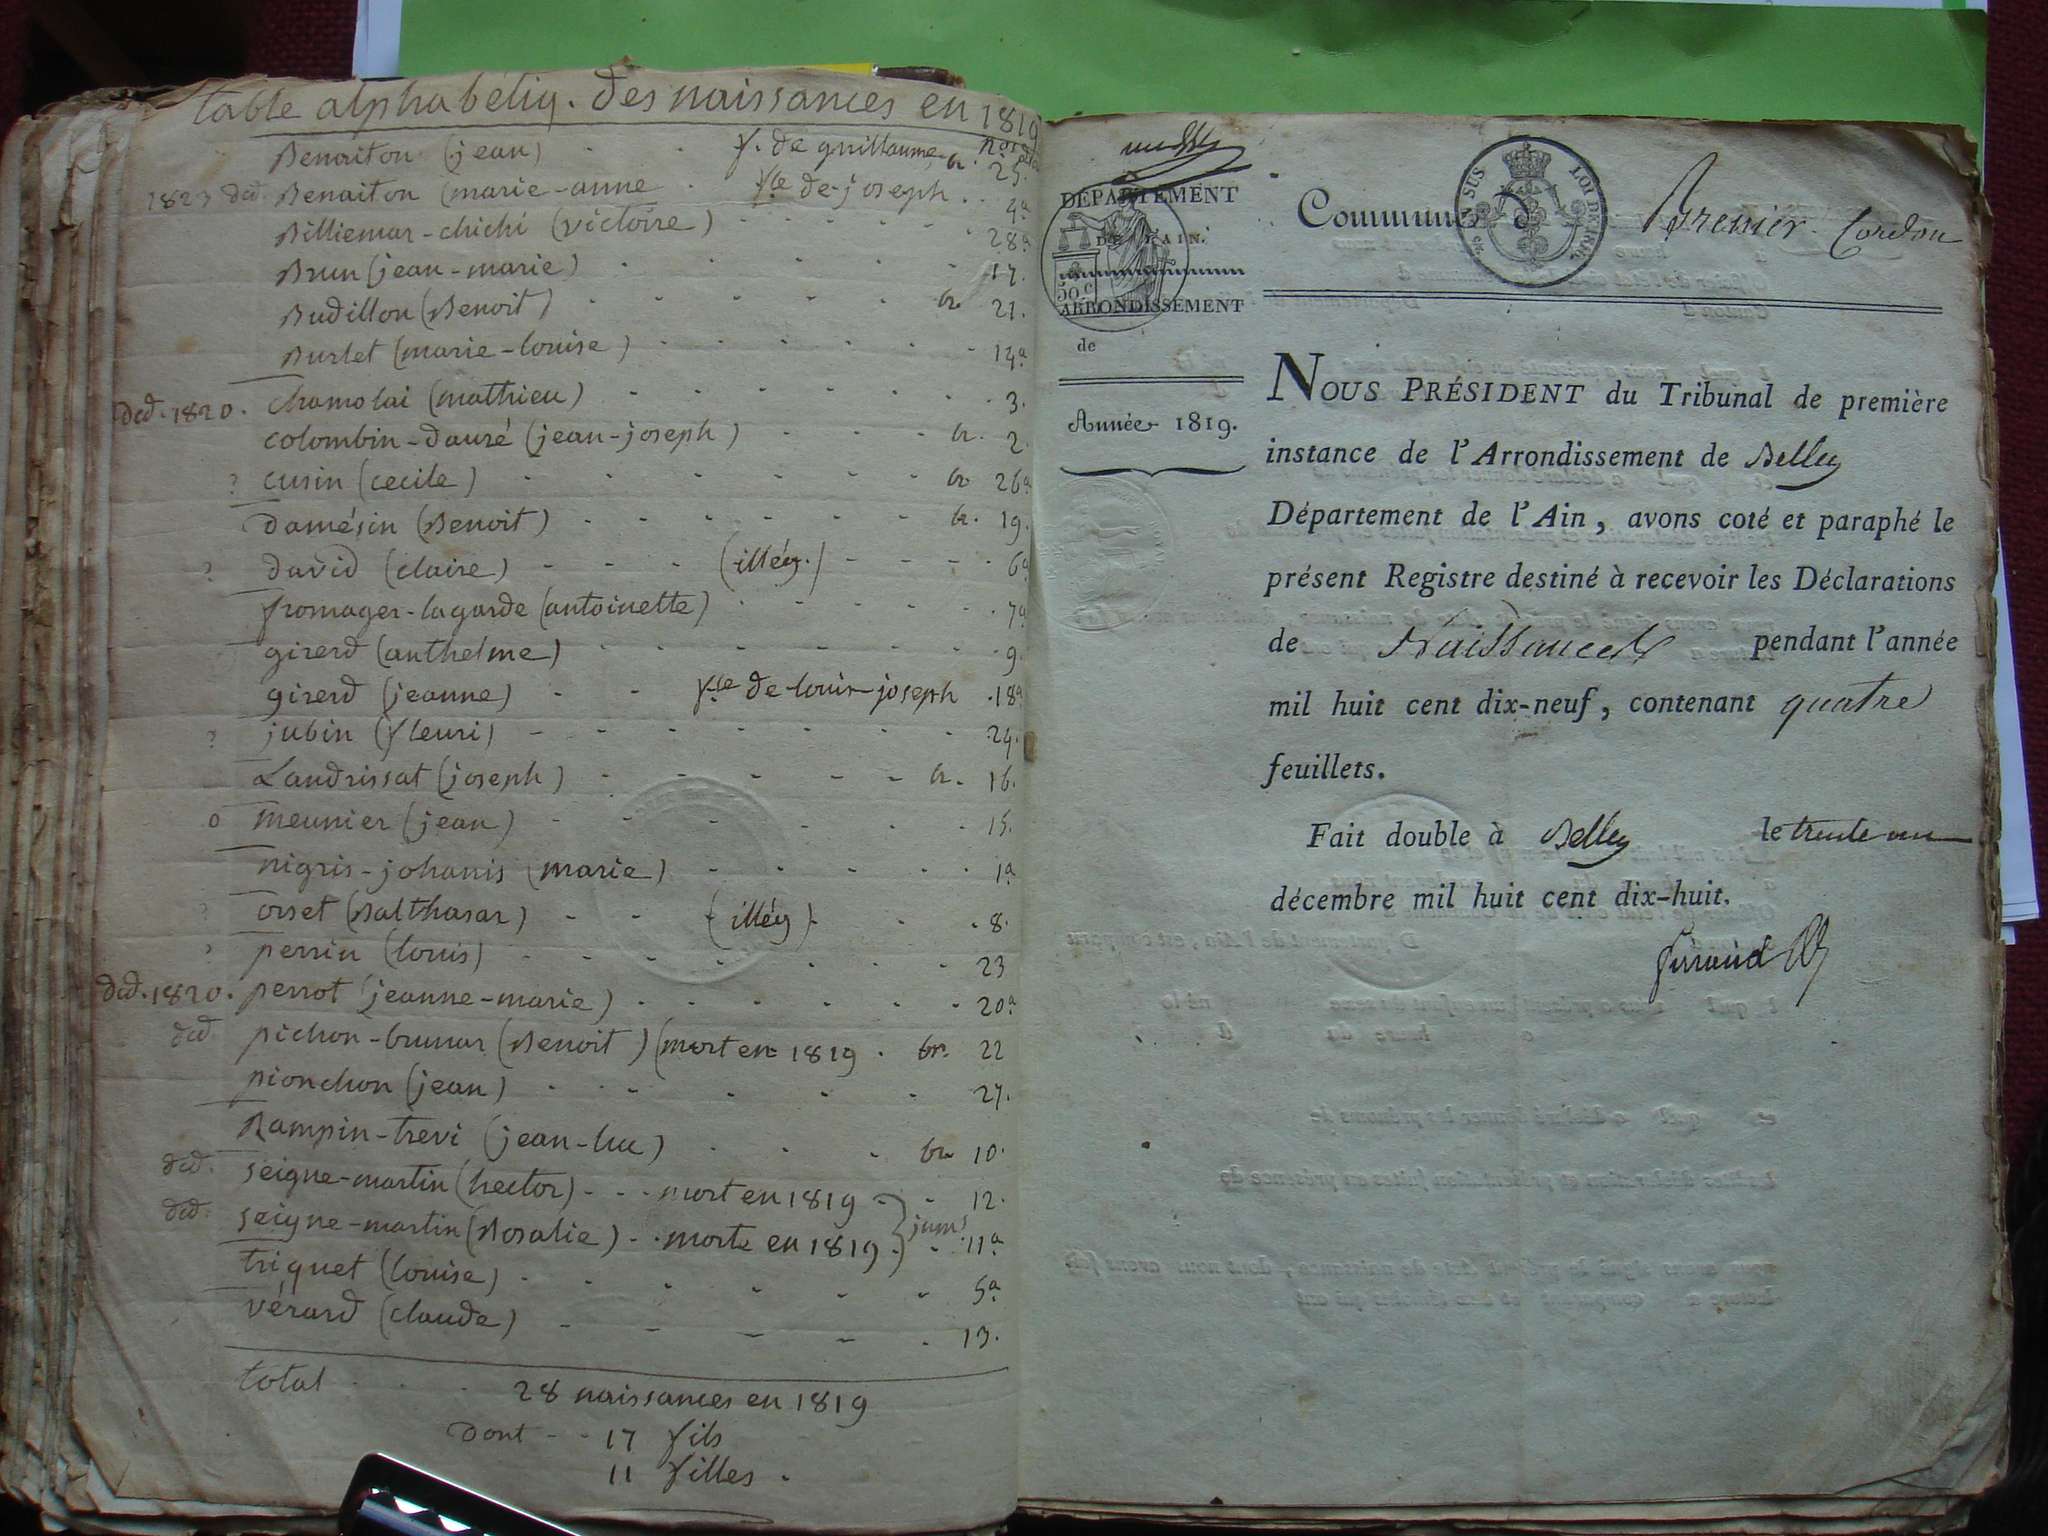 table alphabétiq. des naissances en 1819
nos
Benoiton (jean) f. de guillaume br. 25.
1823 dcd. Benoiton (marie-anne f.lle de joseph 4a
Billiemar-chichi (victoire) 28a
Brun (jean-marie) 17.
Budillon (Benoit) br. 21.
Burlet (marie-louise) 14a
dcd. 1820. chamolai (mathieu) 3.
colombin-dauré (jean-joseph) br. 2.
? cusin (cecile) br 26a
damésin (Benoit) br. 19.
? david (claire) (illég.) 6a
fromager-lagarde (antoinette) 7a
girerd (anthelme) 9.
girerd (jeanne) f.lle de louis-joseph 18a
? jubin (fleuri) 24.
Landrissat (joseph) br. 16.
o meunier (jean) 15.
nigris-johanis (marie) 1a
? orset (Balthasar) (illég) 8.
? perrin (louis) 23
dcd. 1820. perrot (jeanne-marie) 20a
dcd pichon-brunar (Benoit) (mort en 1819. br. 22
pionchon (jean) 27.
Rampin-trevi (jean-luc) br 10.
dcd. seigne-martin (hector) mort en 1819 12.
dcd. seigne-martin (Rosalie) morte en 1819 jum. 11a
triquet (louise) 5a
vérard (claude) 13.
total 28 naissances en 1819
dont 17 fils
11 filles.
DÉPARTEMENT
DE L'AIN.
50 c
ARRONDISSEMENT
de
Année 1819.
Commune d Bregnier-Cordon
LOI DE
NOUS PRÉSIDENT du Tribunal de première
instance de l'Arrondissement de Belley
Département de l'Ain, avons coté et paraphé le
présent Registre destiné à recevoir les Déclarations
de Naissances pendant l'année
mil huit cent dix-neuf, contenant quatre
feuillets.
Fait double à Belley le trente un
décembre mil huit cent dix-huit.